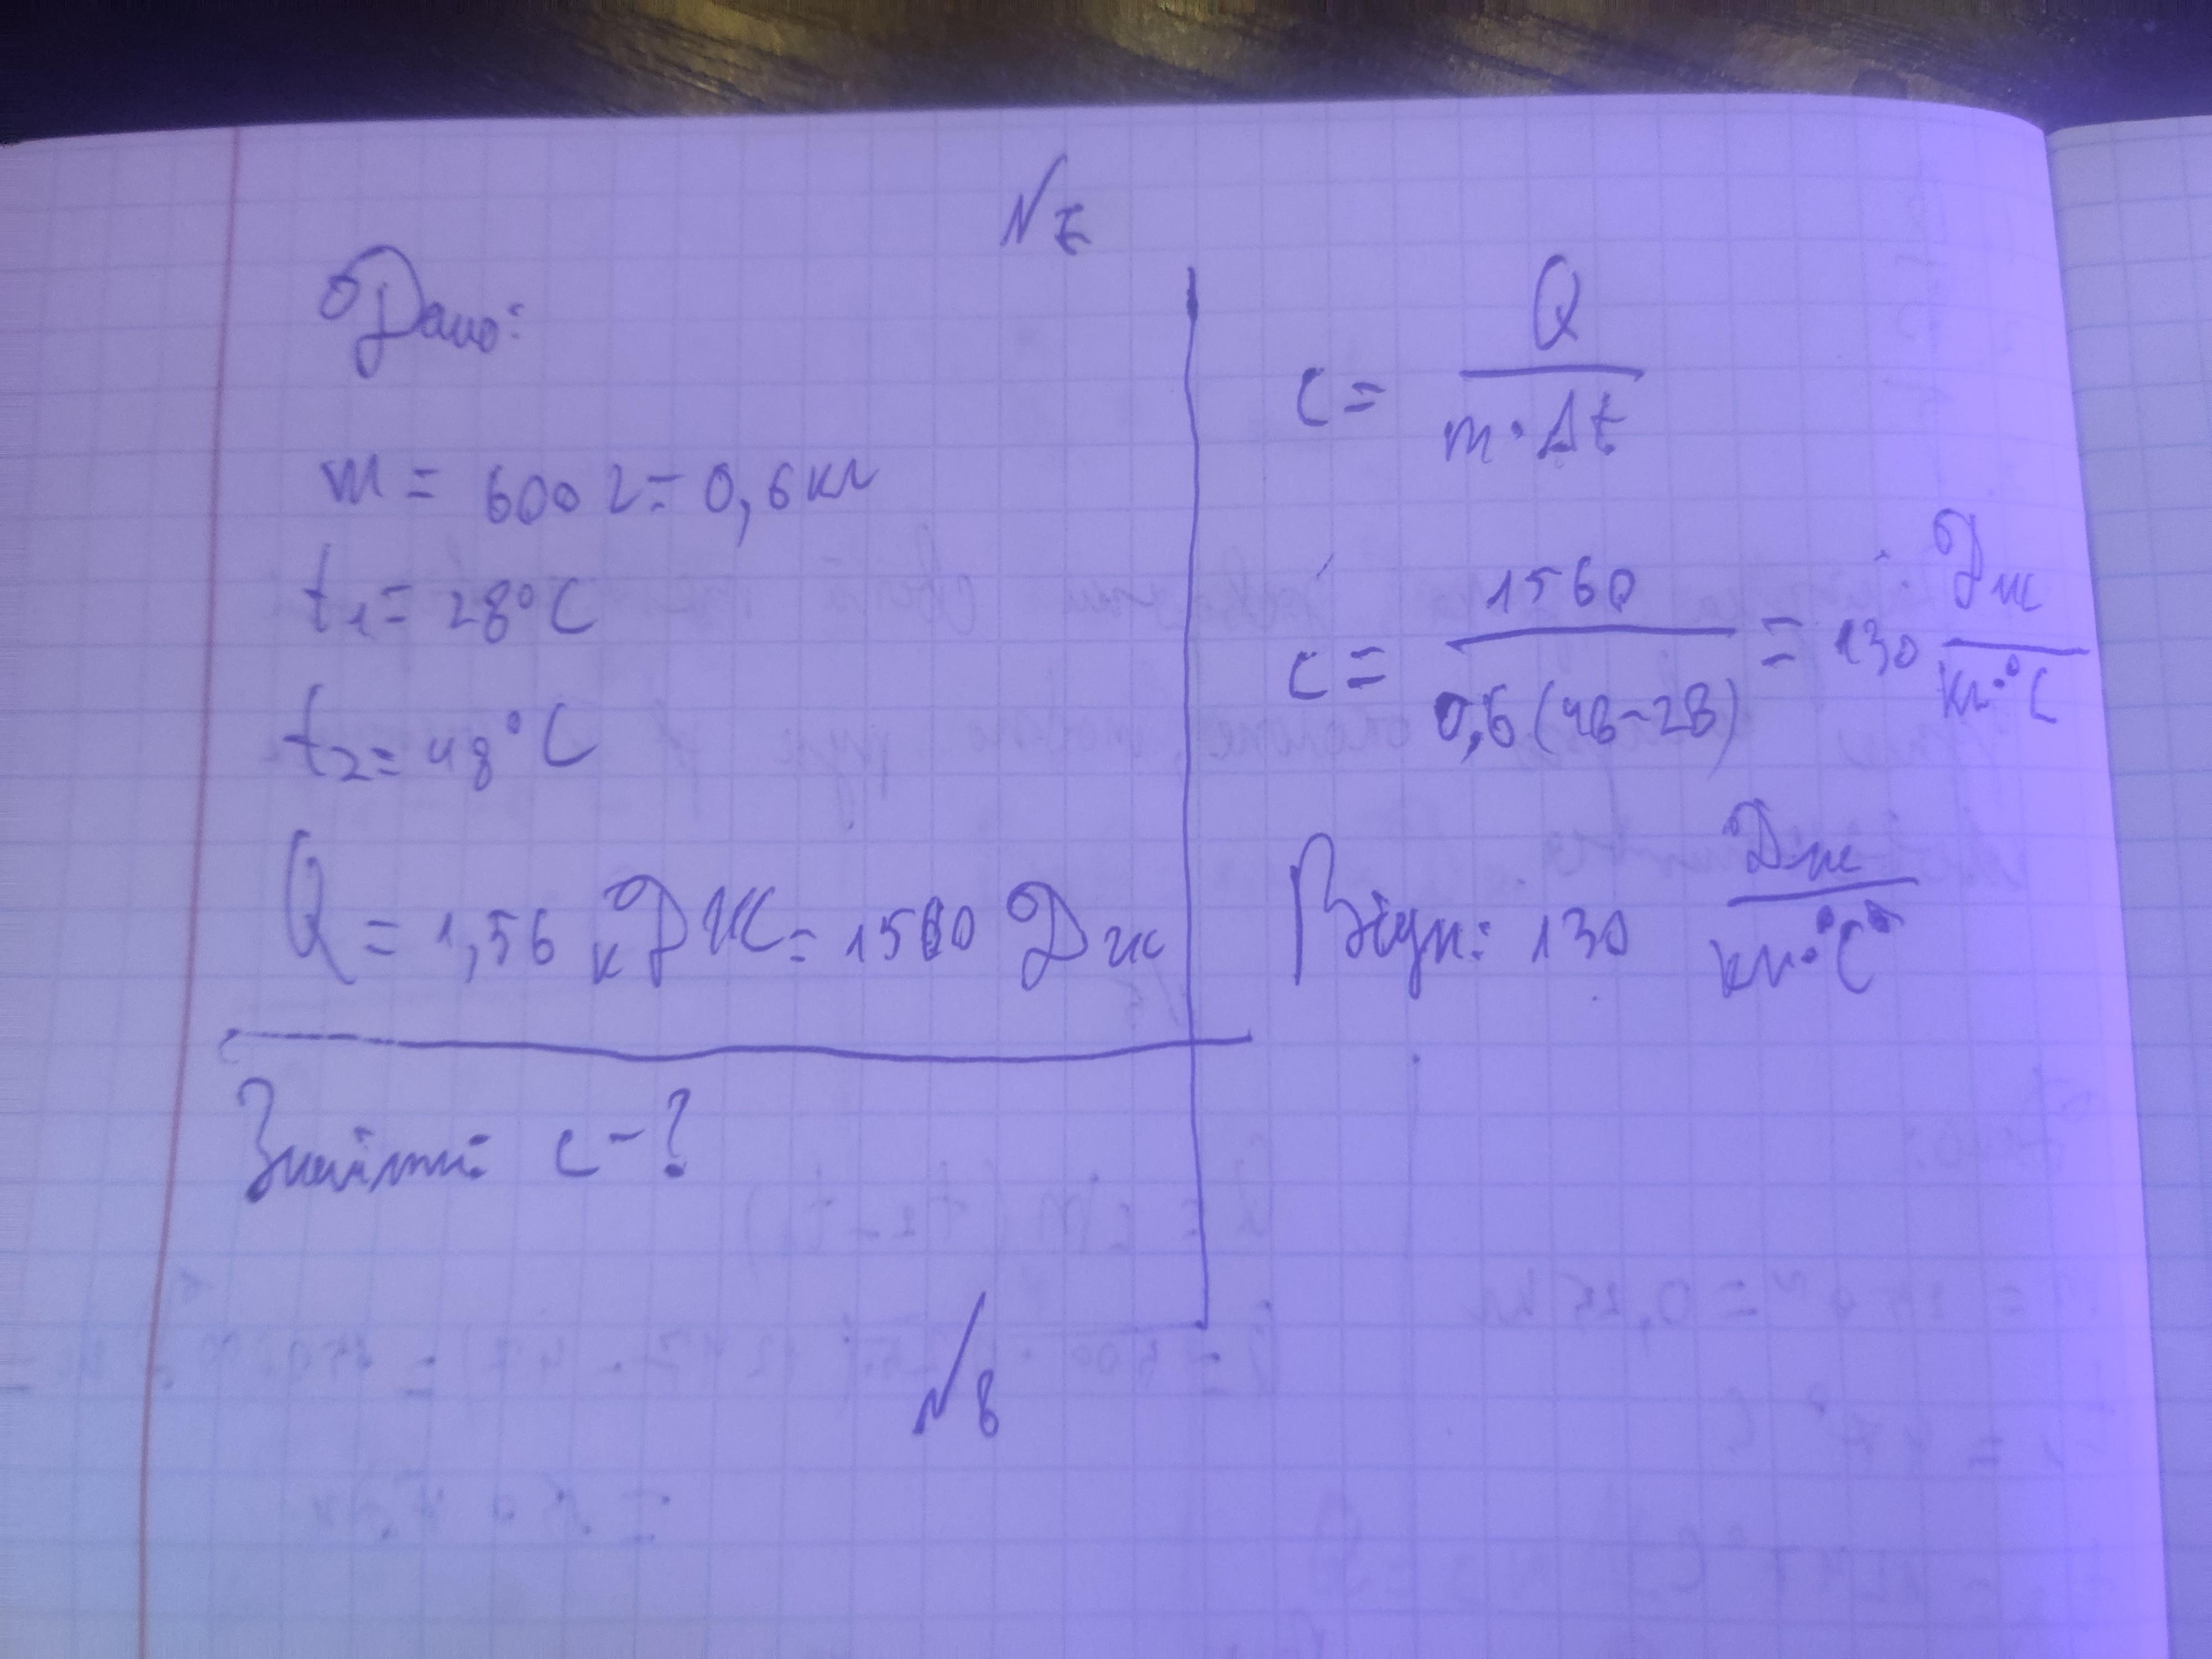 №7
Дано:
m = 600 г = 0,6 кг
t₁ = 28°C
t₂ = 48°C
Q = 1,56 кДж = 1560 Дж
Знайти: c - ?
c = Q / (m · Δt)
c = 1560 / (0,6 (48-28)) = 130 Дж / (кг·°C)
Відп: 130 Дж / (кг·°C)
№8